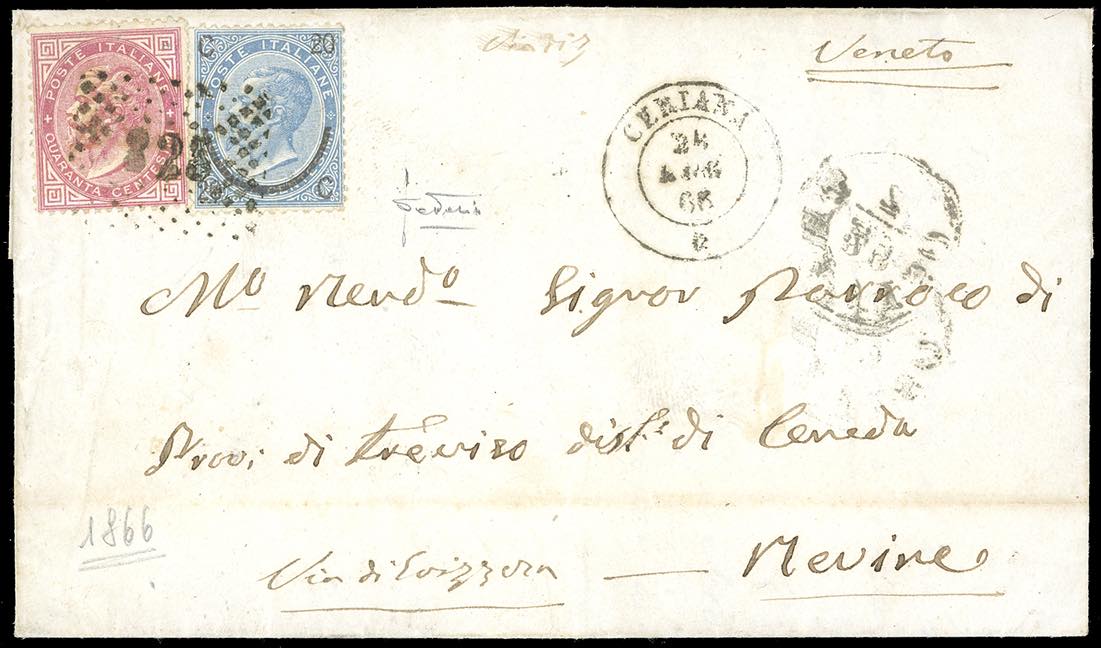 Veneto
C 20
POSTE ITALIANE
POSTE ITALIANE
QUARANTA CENTESIMI
C
CERIANA
24
66
Mº Revdº Signor Parroco di
Provi. di Treviso distº di Ceneda
1866
Via di Svizzera — Revine